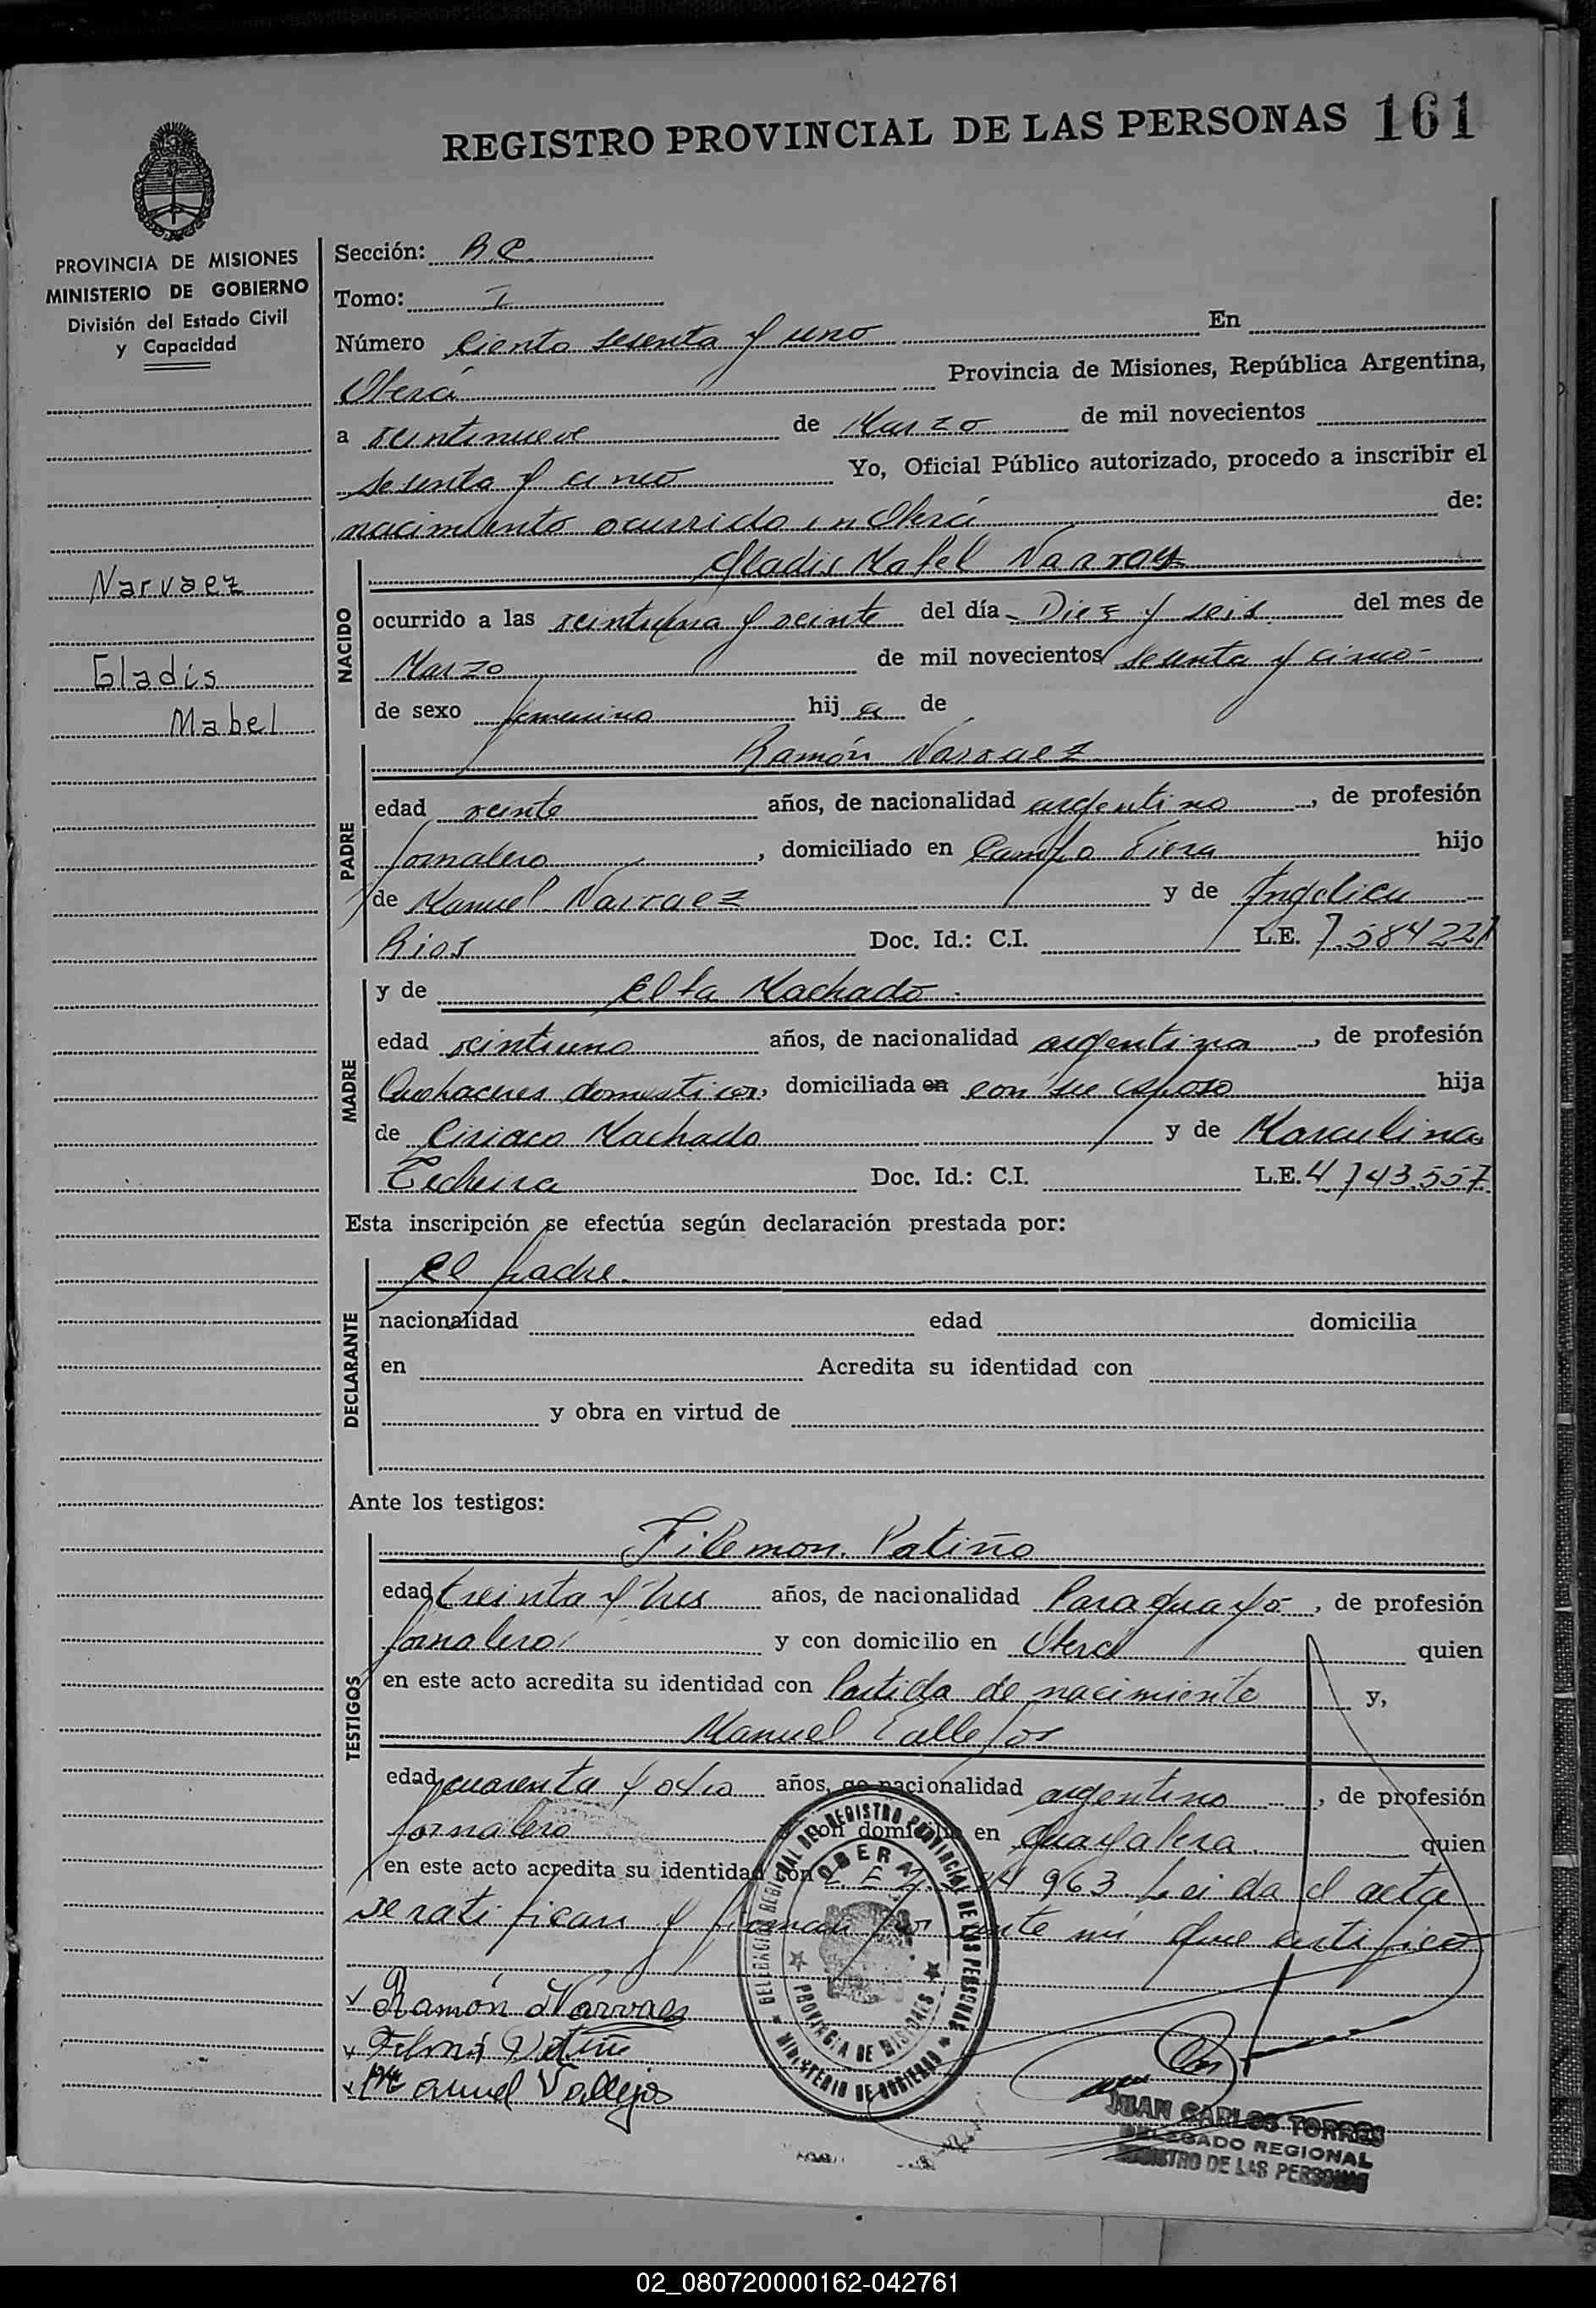 REGISTRO PROVINCIAL DE LAS PERSONAS 161
PROVINCIA DE MISIONES
MINISTERIO DE GOBIERNO
División del Estado Civil
y Capacidad
Narvaez
Gladis
Mabel
Sección: B.C.
Tomo: I
Número Ciento sesenta y uno En
Oberá Provincia de Misiones, República Argentina,
a veintinueve de Marzo de mil novecientos
sesenta y cinco Yo, Oficial Público autorizado, procedo a inscribir el
nacimiento ocurrido en Oberá de:
NACIDO
Gladis Mabel Narvaez
ocurrido a las veintiuna y veinte del día Diez y seis del mes de
Marzo de mil novecientos sesenta y cinco-
de sexo femenino hij a de
PADRE
Ramón Narvaez
edad veinte años, de nacionalidad argentino, de profesión
Jornalero, domiciliado en Campo Viera hijo
de Manuel Narvaez y de Angelica
Rios Doc. Id.: C.I. L.E. 7.584221
MADRE
y de Elba Machado.
edad veintiuno años, de nacionalidad argentina, de profesión
Quehaceres domesticos, domiciliada en con su esposo hija
de Ciriaco Machado y de Marculina
Techeira Doc. Id.: C.I. L.E. 4.743.557
Esta inscripción se efectúa según declaración prestada por:
DECLARANTE
El padre.
nacionalidad edad domicilia
en Acredita su identidad con
y obra en virtud de
Ante los testigos:
TESTIGOS
Filemon Patiño
edad treinta y tres años, de nacionalidad Paraguayo, de profesión
Jornalero y con domicilio en Oberá quien
en este acto acredita su identidad con Partida de nacimiento y,
Manuel Vallejos
edad cuarenta y ocho años, de nacionalidad argentino, de profesión
Jornalero y con domicilio en Guayabera quien
en este acto acredita su identidad con L E 963 Leida el acta
se ratifican y firman por ante mi que certifico
Ramón Narvaes
Patiño
Manuel Vallejos
DELEGACION REGIONAL DEL REGISTRO PROVINCIAL DE LAS PERSONAS
OBERA
PROVINCIA DE MISIONES
MINISTERIO DE GOBIERNO
JUAN CARLOS TORRES
DELEGADO REGIONAL
REGISTRO DE LAS PERSONAS
02_080720000162-042761